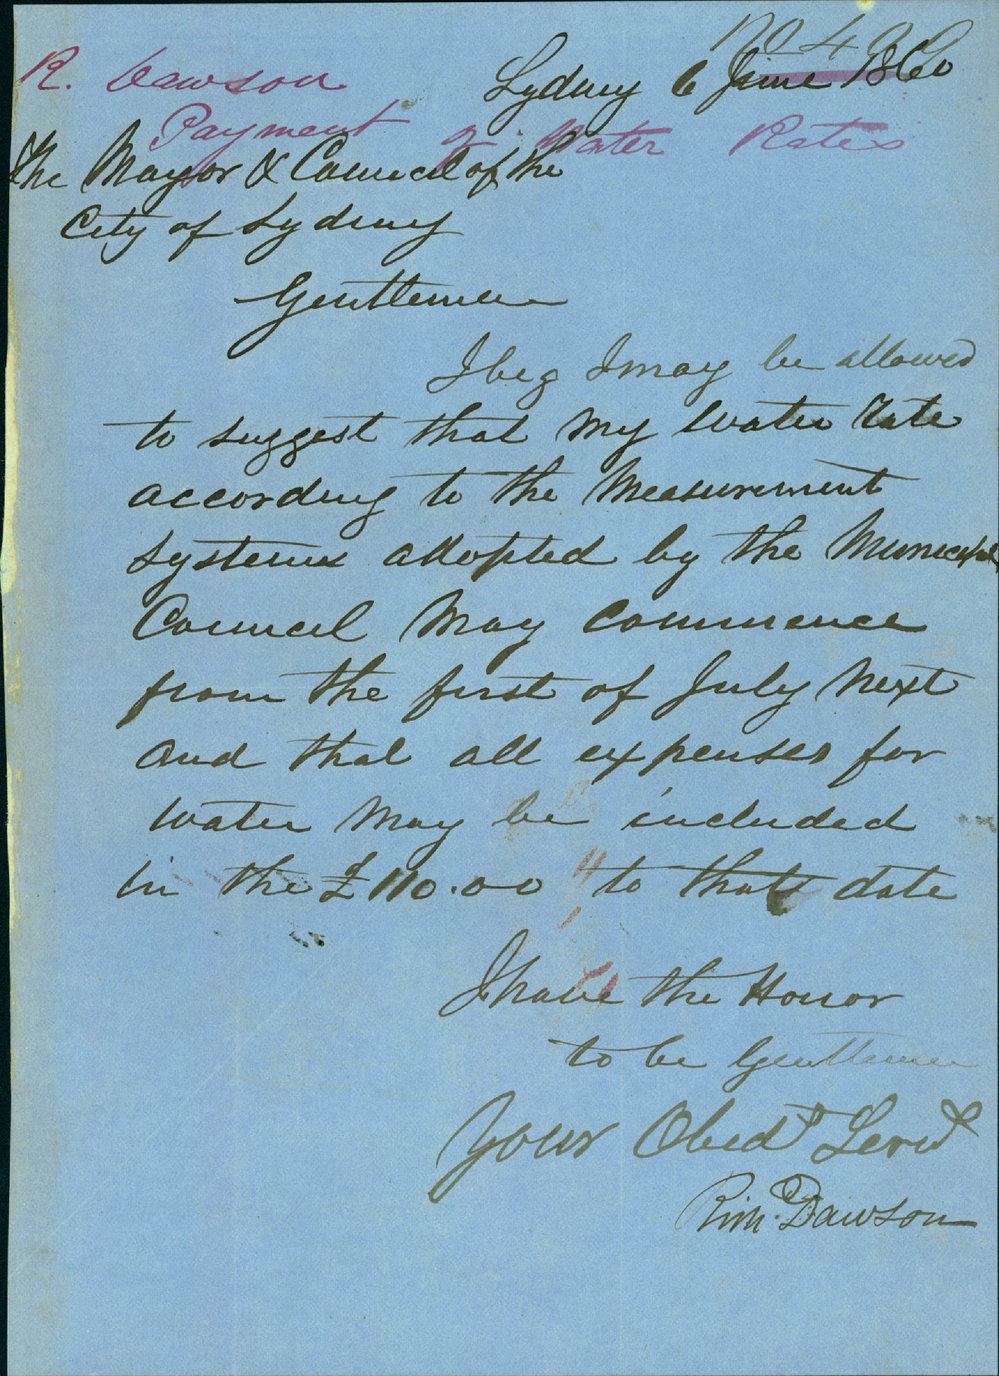 No 4
R. Dawson
Sydney 6 June 1860
Payment of Water Rates
The Mayor & Council of the
City of Sydney
Gentlemen
I beg I may be allowed
to suggest that my Water rate
according to the Measurement
systems adopted by the Municipal
Council May Commence
from the first of July Next
and that all expenses for
water May be included
in the £110.00 to that date
I have the Honor
to be Gentlemen
Your Obedt Servt
Dawson